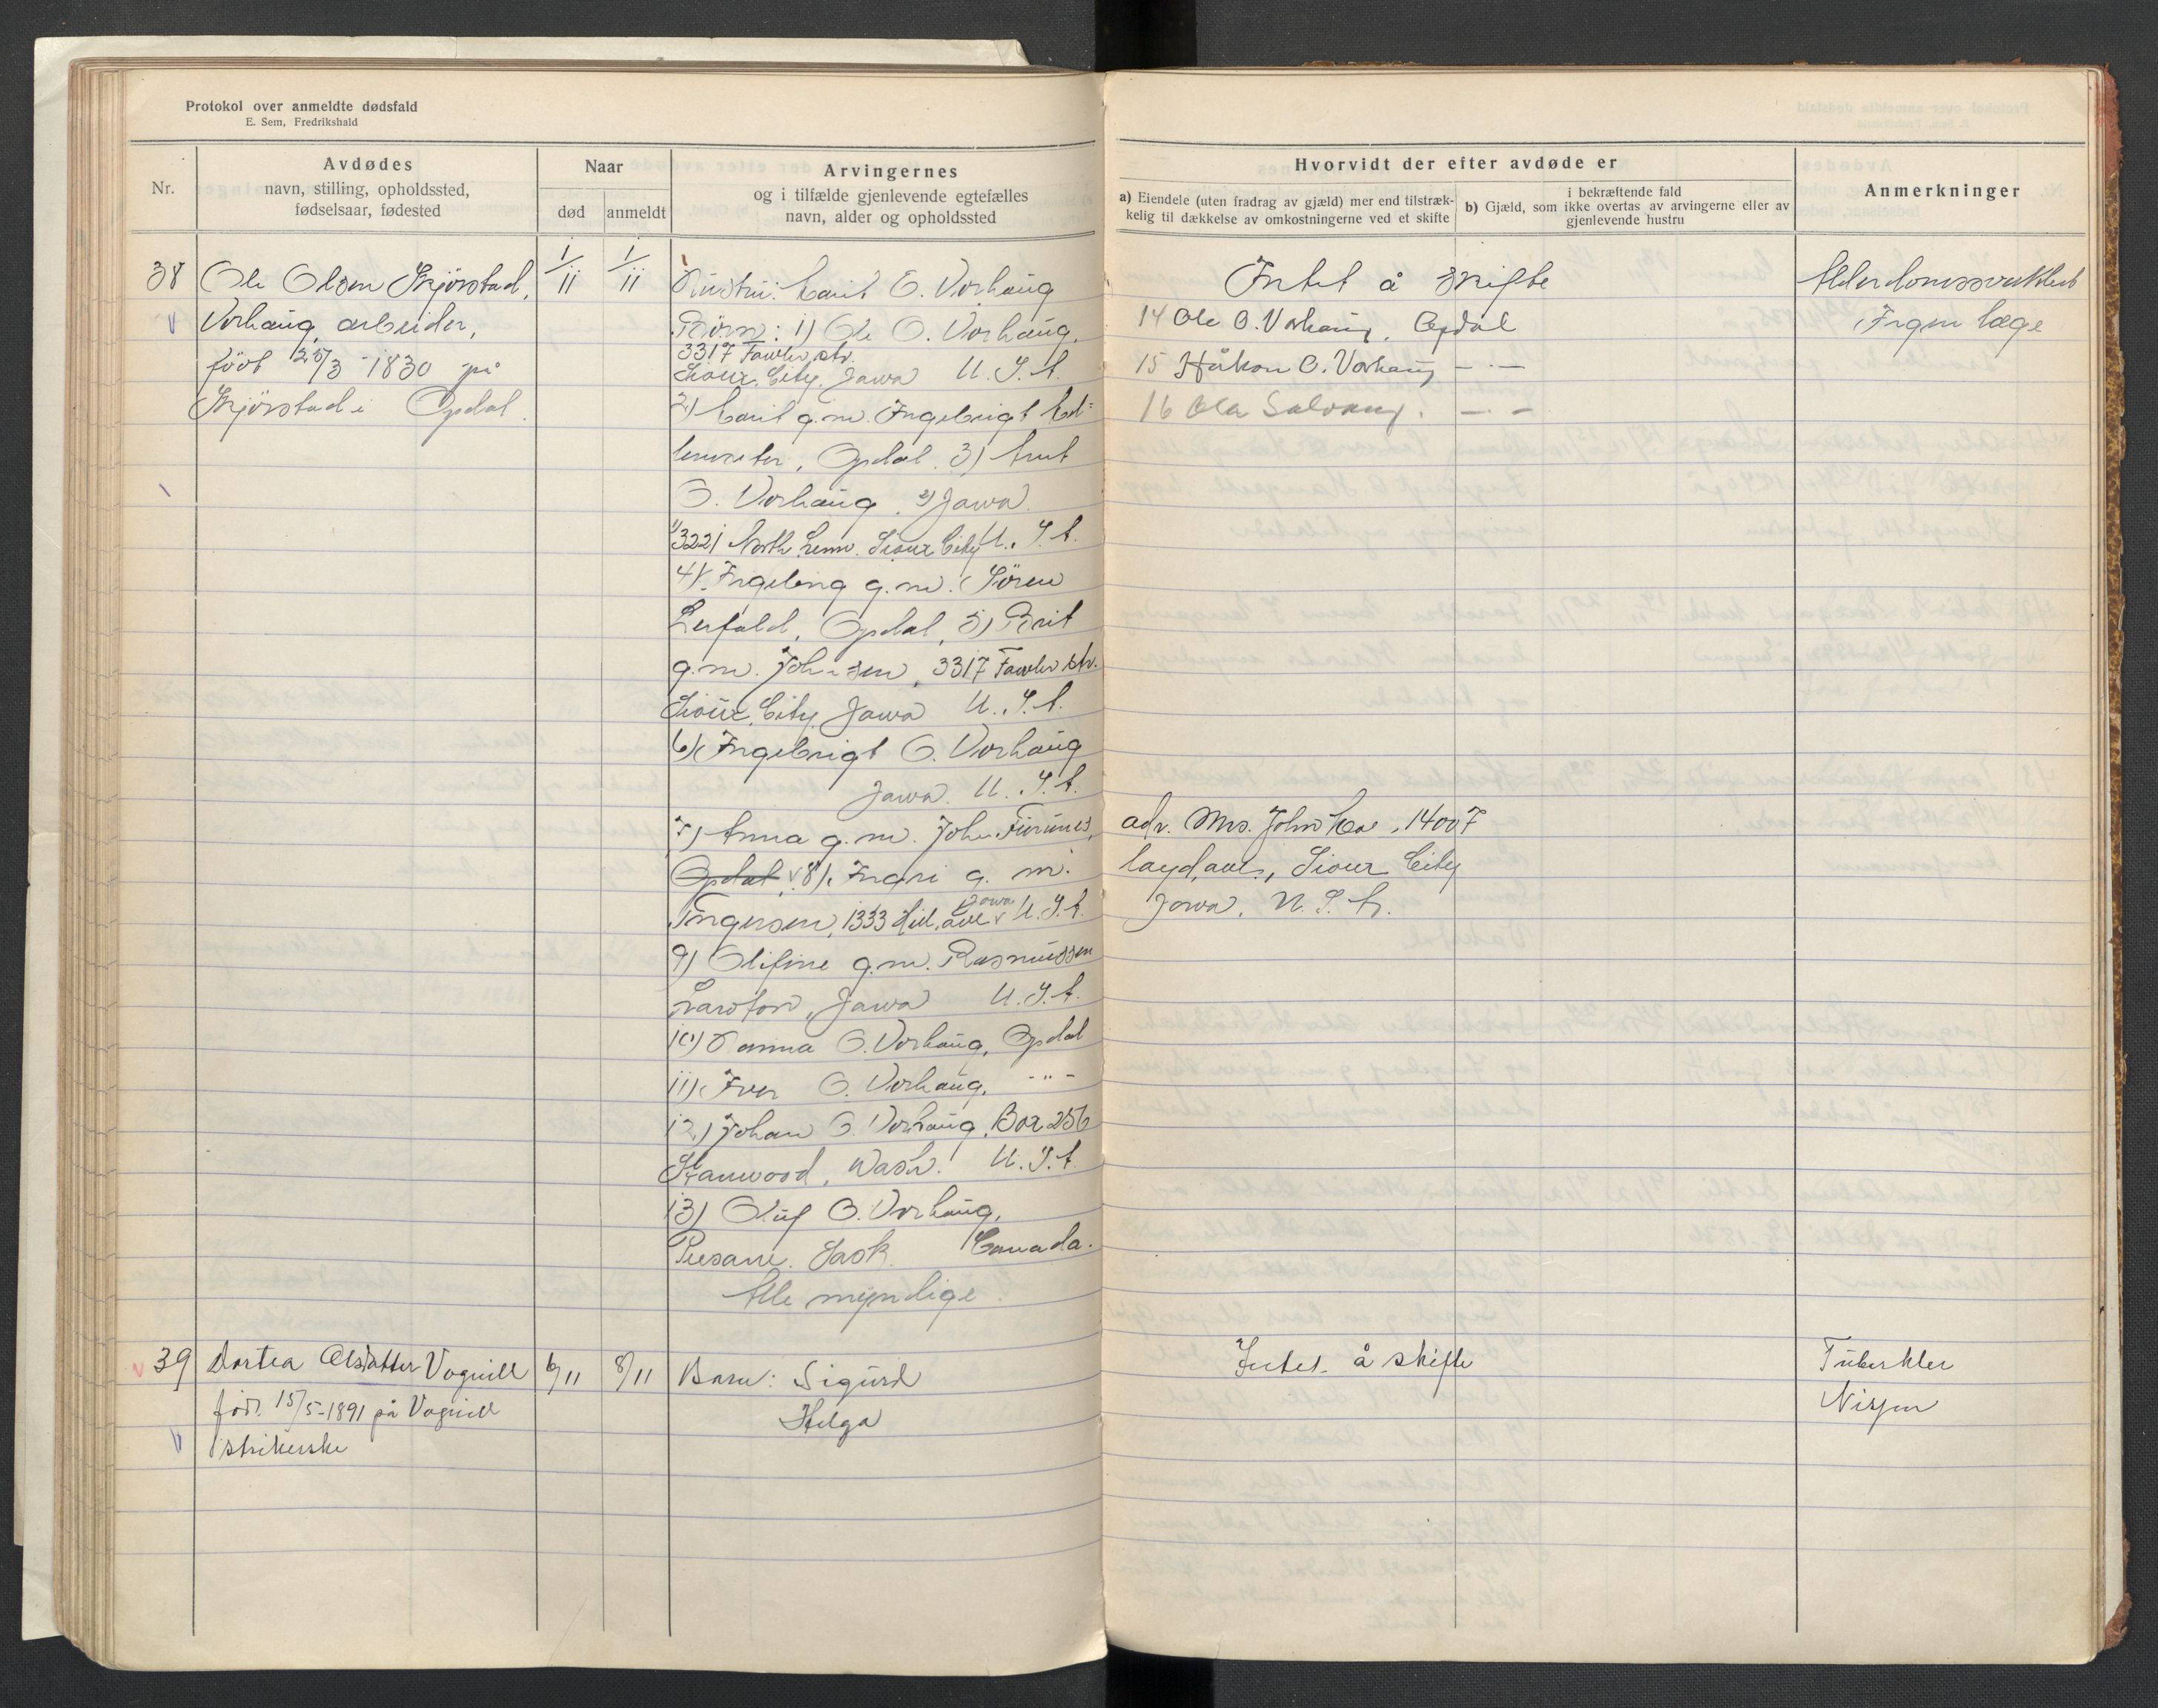 Protokol over anmeldte dødsfald
E. Sem, Fredrikshald
Nr.
Avdødes
navn, stilling, opholdssted,
fødselsaar, fødested
Naar
død
anmeldt
Arvingernes
og i tilfælde gjenlevende egtefælles
navn, alder og opholdssted
Hvorvidt der efter avdøde er
a) Eiendele (uten fradrag av gjæld) mer end tilstræk-
kelig til dækkelse av omkostningerne ved et skifte
i bekræftende fald
b) Gjæld, som ikke overtas av arvingerne eller av
gjenlevende hustru
Anmerkninger
38
Ole Olsen Skjörstad,
Vorhaug, arbeider,
født 25/3 1830 på
Skjörstad i Opdal.
1/11
1/11
Hustru: Carit O. Vorhaug
Börn: 1) Ole O. Vorhaug,
3317 Fawler str.
Sioux City Jowa U.S.A.
2) Carit g.m. Ingebrigt
Opdal. 3) Arnt
O. Vorhaug, Jowa
3221 North Sioux City U.S.A.
4) Ingeborg g.m. Sören
Opdal, 5) Brit
g.m. Johnsen, 3317 Fawler str.
Sioux City Jowa U.S.A.
6) Ingebrigt O. Vorhaug
Jowa U.S.A.
7) Anna g.m. John Furunes,
Opdal 8) Ingri g.m.
Ingersen, 1333 Hill, ave Jowa U.S.A.
9) Olifine g.m. Rasmussen
Lawton, Jowa U.S.A.
10) Hanna O. Vorhaug, Opdal
11) Iver O. Vorhaug, -"-
12) Johan O. Vorhaug, Box 256
Stanwood, Wash. U.S.A.
13) Oluf O. Vorhaug,
Sask. Canada.
Alle myndige.
Intet å skifte
14 Ole O. Vorhaug, Opdal
15 Håkon O. Vorhaug -"-
16 Ola -"-
adr. Mrs. John 1400 7
Sioux City
Jowa, U.S.A.
Alderdomssvakhet
Ingen læge
39
Dortea Olsdatter Vognill
född 15/5-1891 på Vognill
strikerske
6/11
8/11
Barn: Sigurd
Helga
Intet å skifte
Tuberkler
Nissen